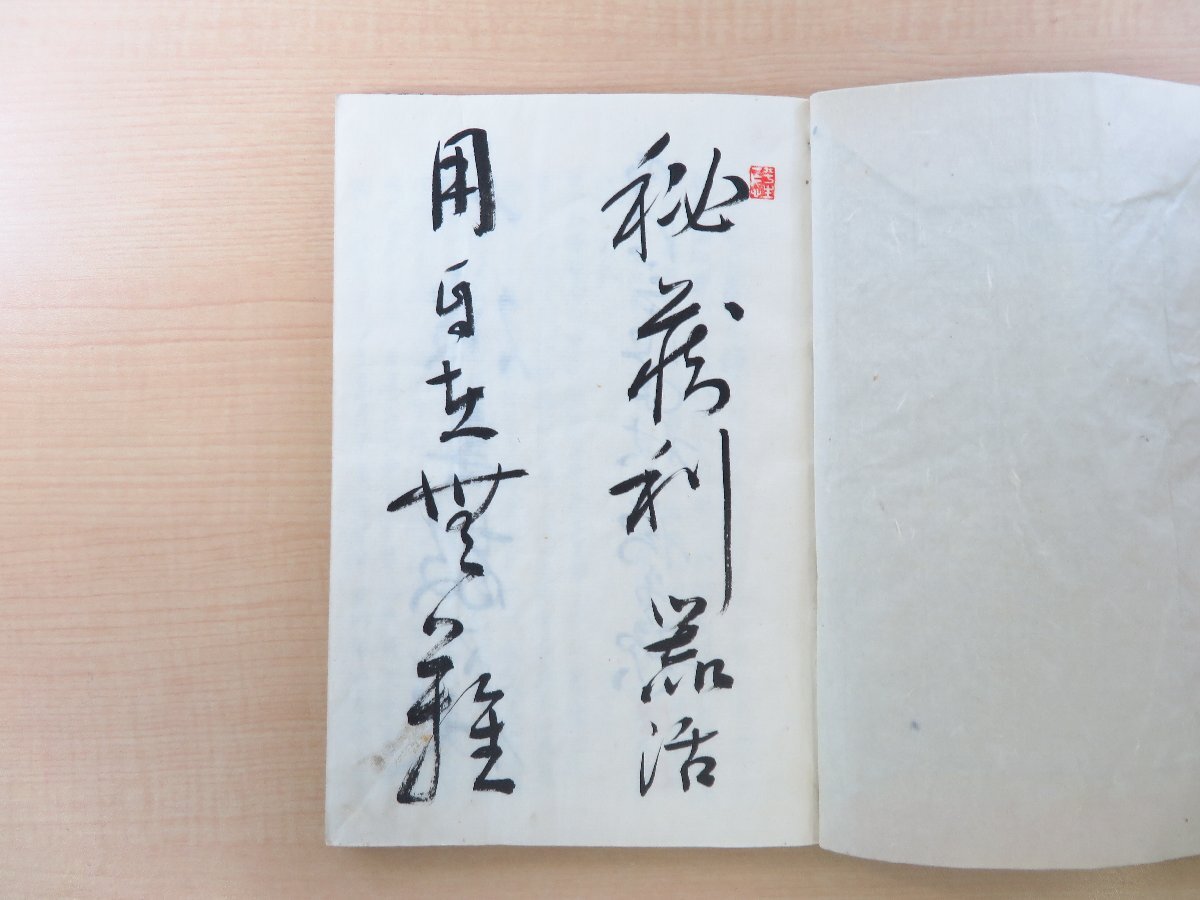 秘蔵利器活
用自在無難